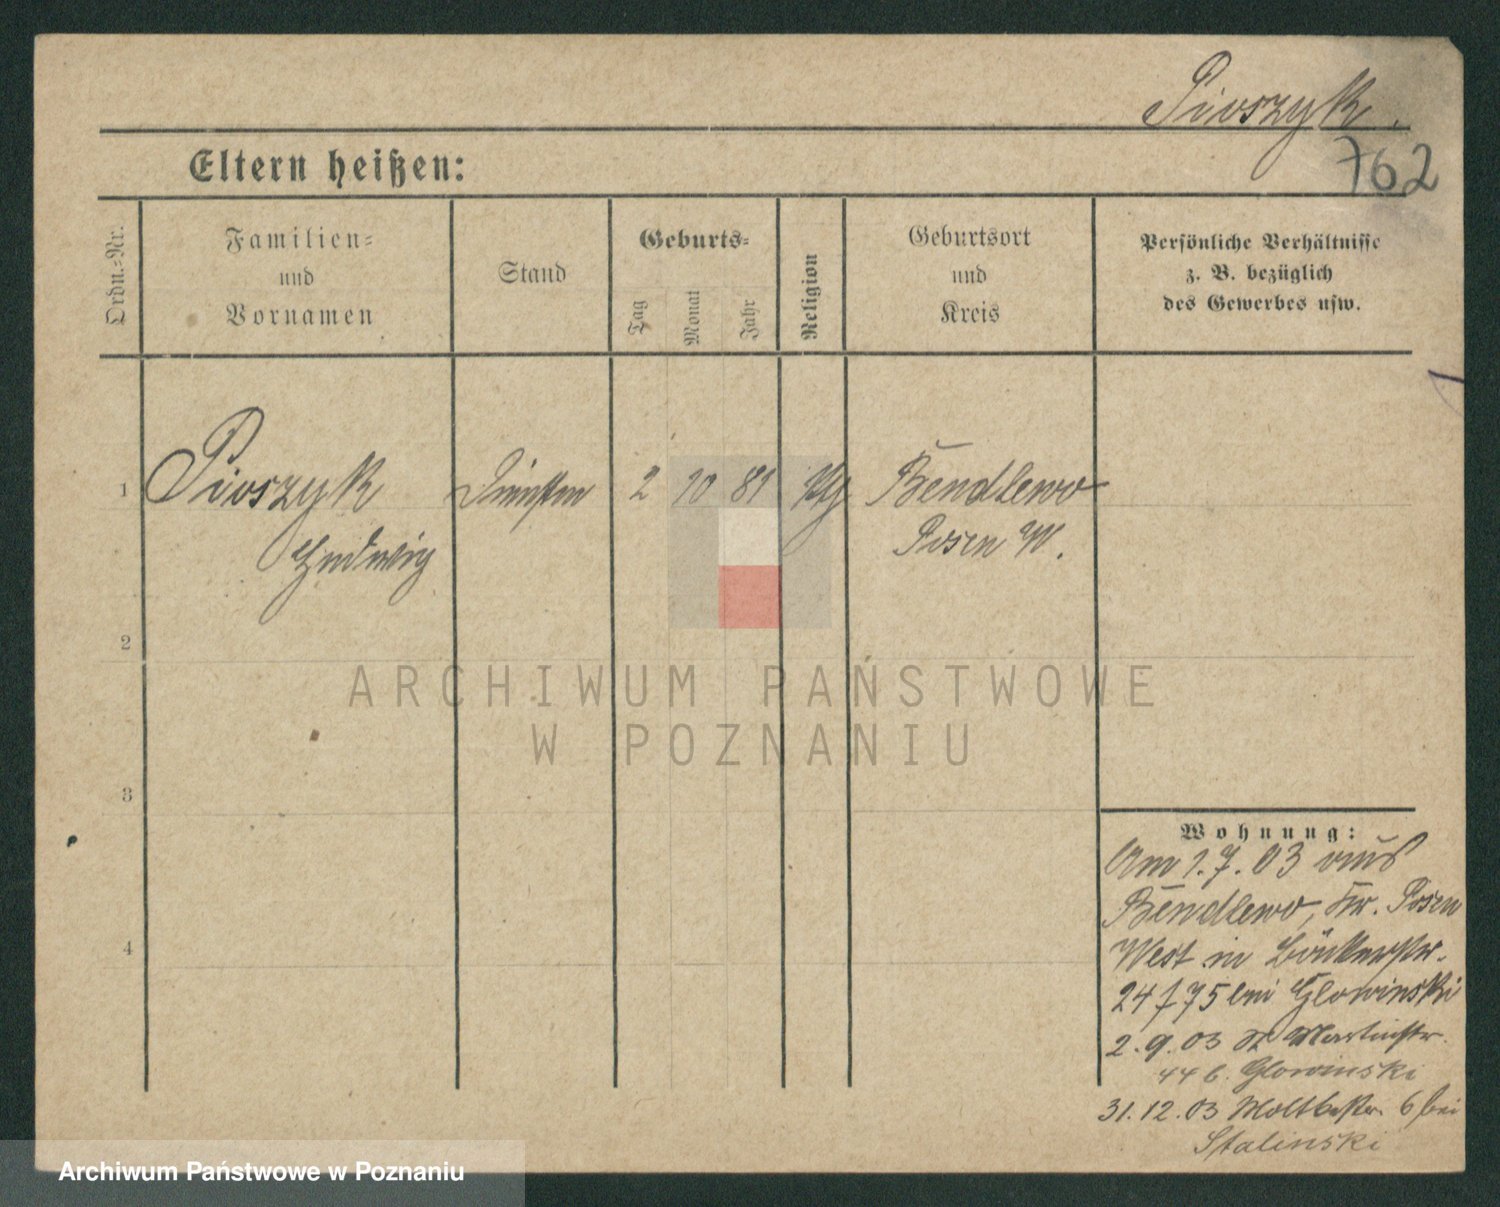 Pioszyk.
762
Eltern heißen:
Ordn.-Nr.
Familien-
und
Vornamen
Stand
Geburts-
Tag
Monat
Jahr
Religion
Geburtsort
und
Kreis
Persönliche Verhältnisse
z. B. bezüglich
des Gewerbes usw.
1 Pioszyk 2 10 81 Bendlewo
Hedwig Posen W.
2
3
4
ARCHIWUM PAŃSTWOWE
W POZNANIU
Wohnung:
Am 1.7.03 aus
Bendlewo, Kr. Posen
West in Bäckerstr.
24 / 75 bei Glowinski
2.9.03 St Martinstr.
44 b. Glowinski
31.12.03 Moltkestr. 6 bei
Stalinski
Archiwum Państwowe w Poznaniu